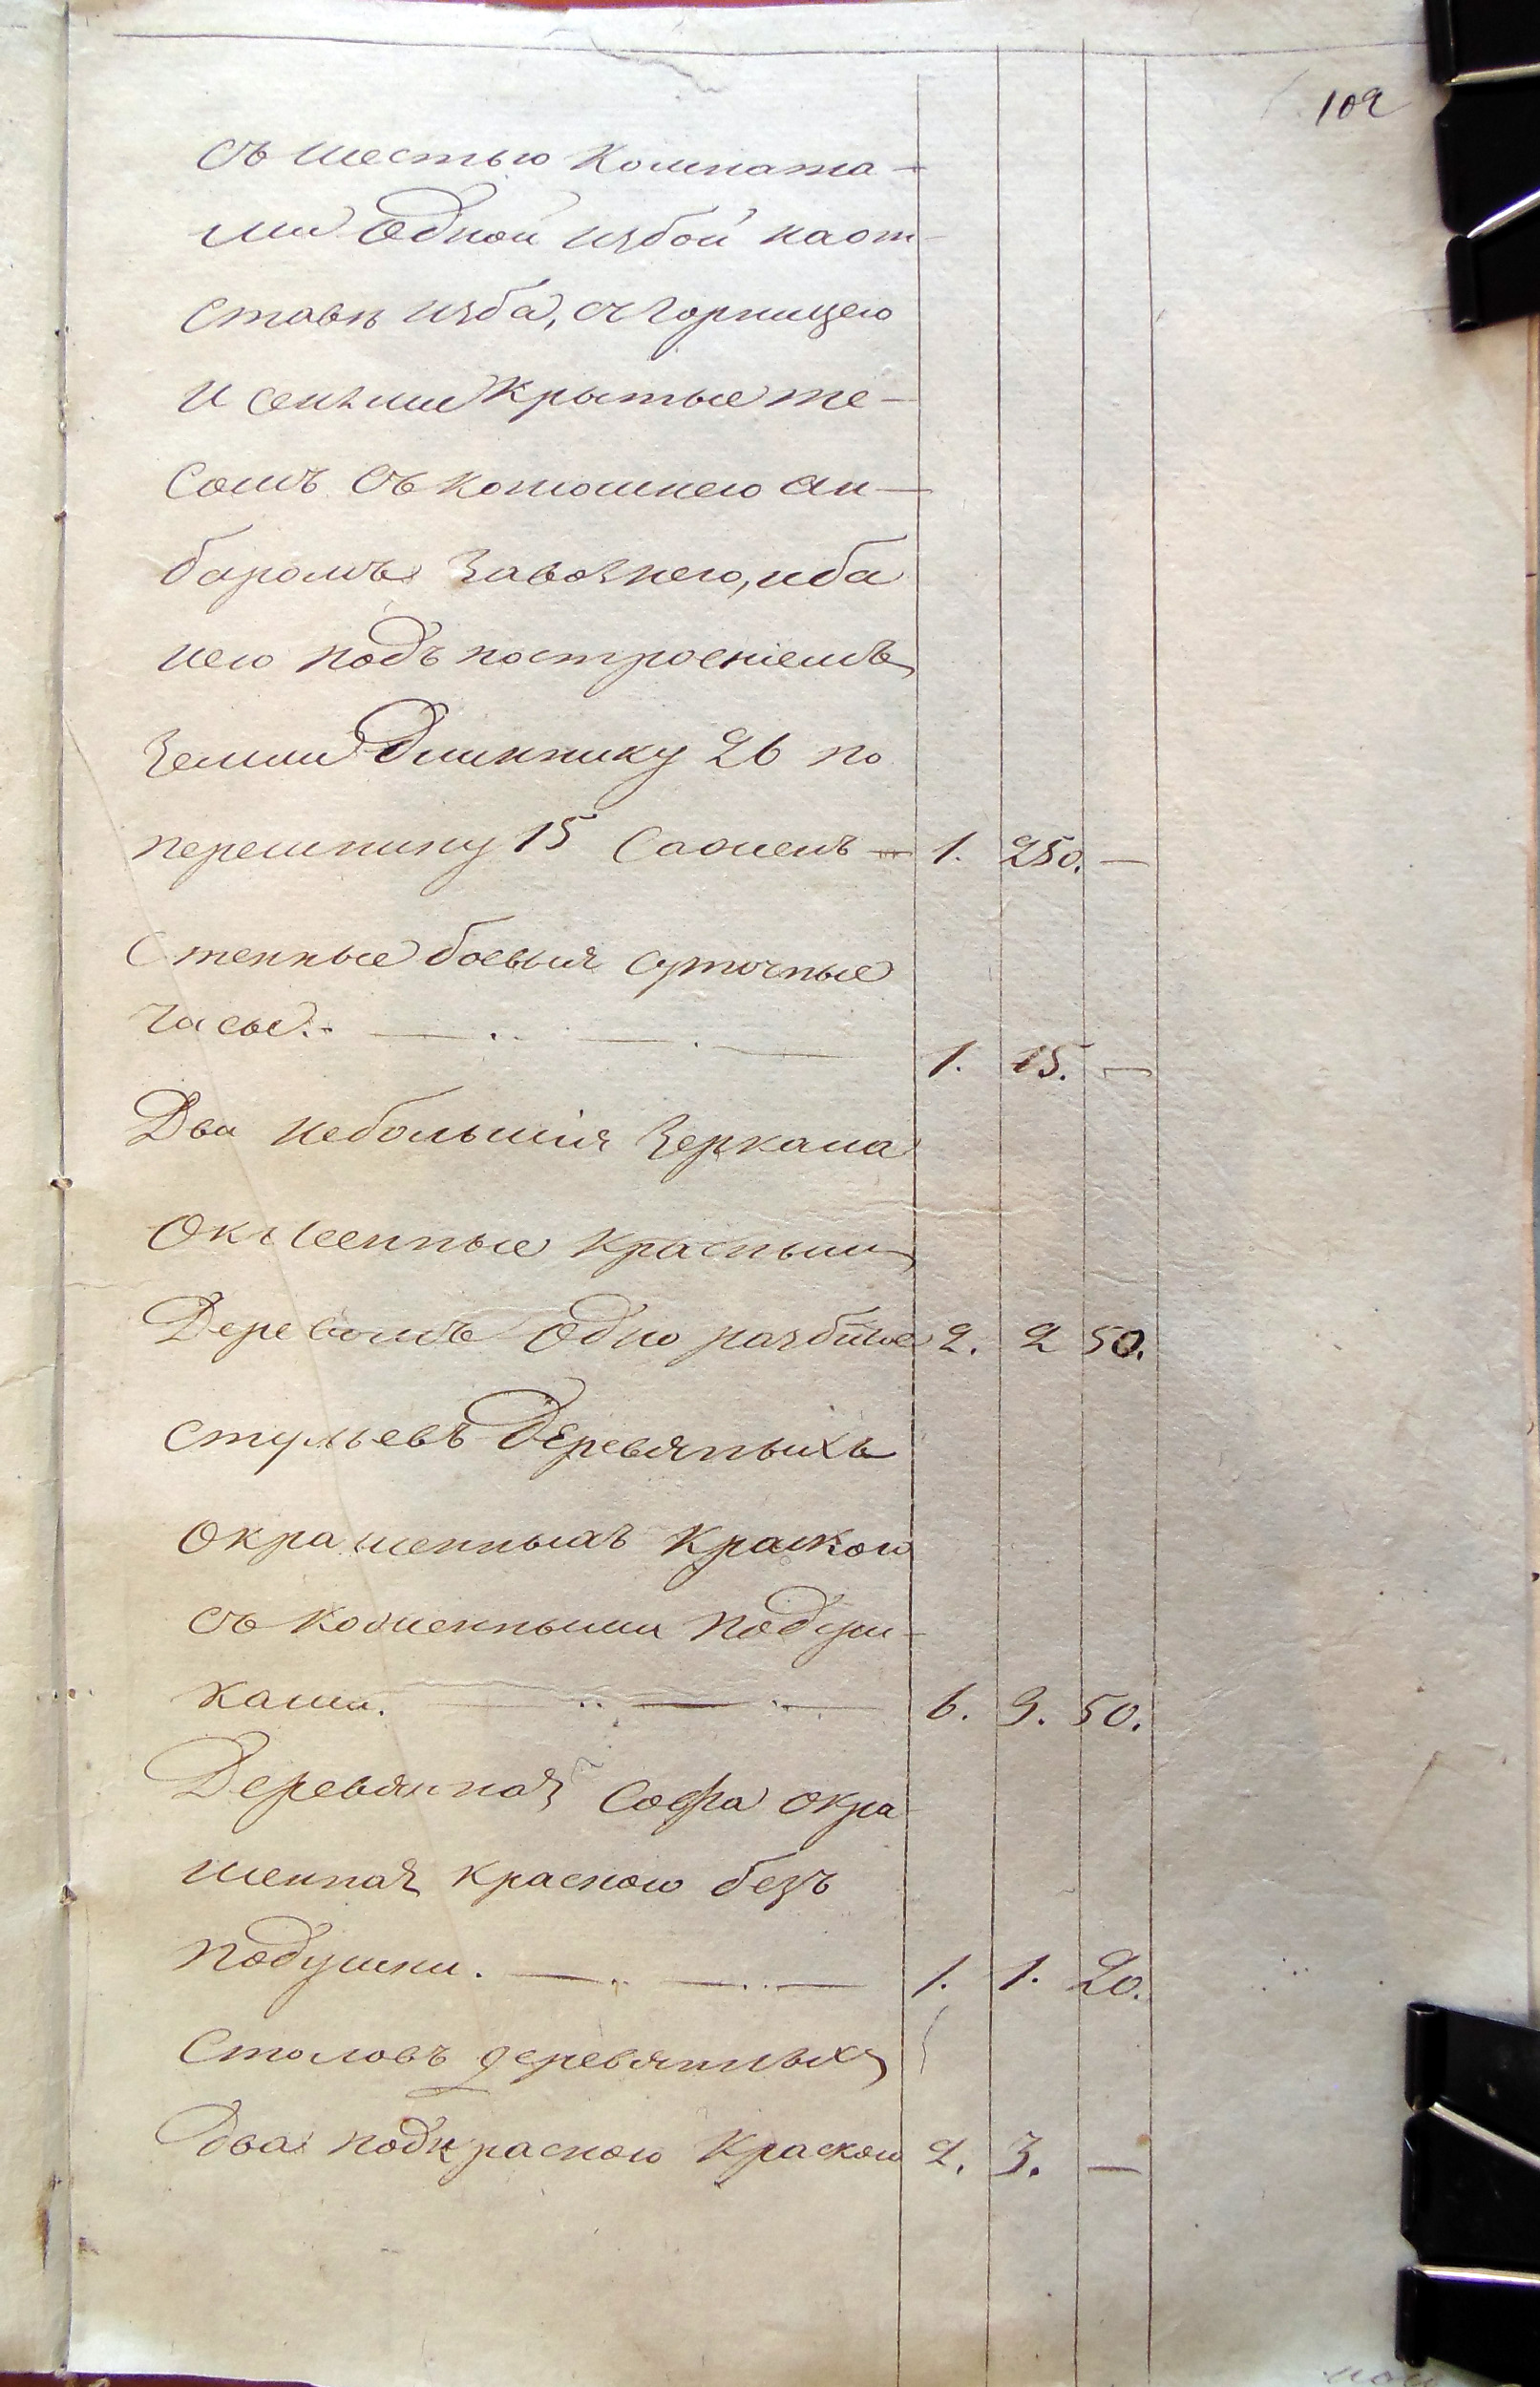 102
съ шестью комната-
ми одной избой наот-
ставѣ изба, съ горницею
и сеньми крытые те-
сомъ съ конюшнею ан-
баромъ завознею, и ба
нею подъ построеніемъ
земли длиннику 26 по
перешнику 15 саженъ — 1. 250. —
Стенные боевыя суточные
часы. — 1. 15. —
Два небольшія зеркала
оклеенные краснымъ
Деревомъ одно разбитое 2. 2 50.
стульевъ деревяныхъ
окрашенныхъ краскою
съ коженными подуш-
ками. — 6. 9. 50.
Деревянная софа окра
шенная краскою безъ
подушки. — 1. 1. 20.
Столовъ деревянныхъ
два подкрасною краскою 2. 3. —